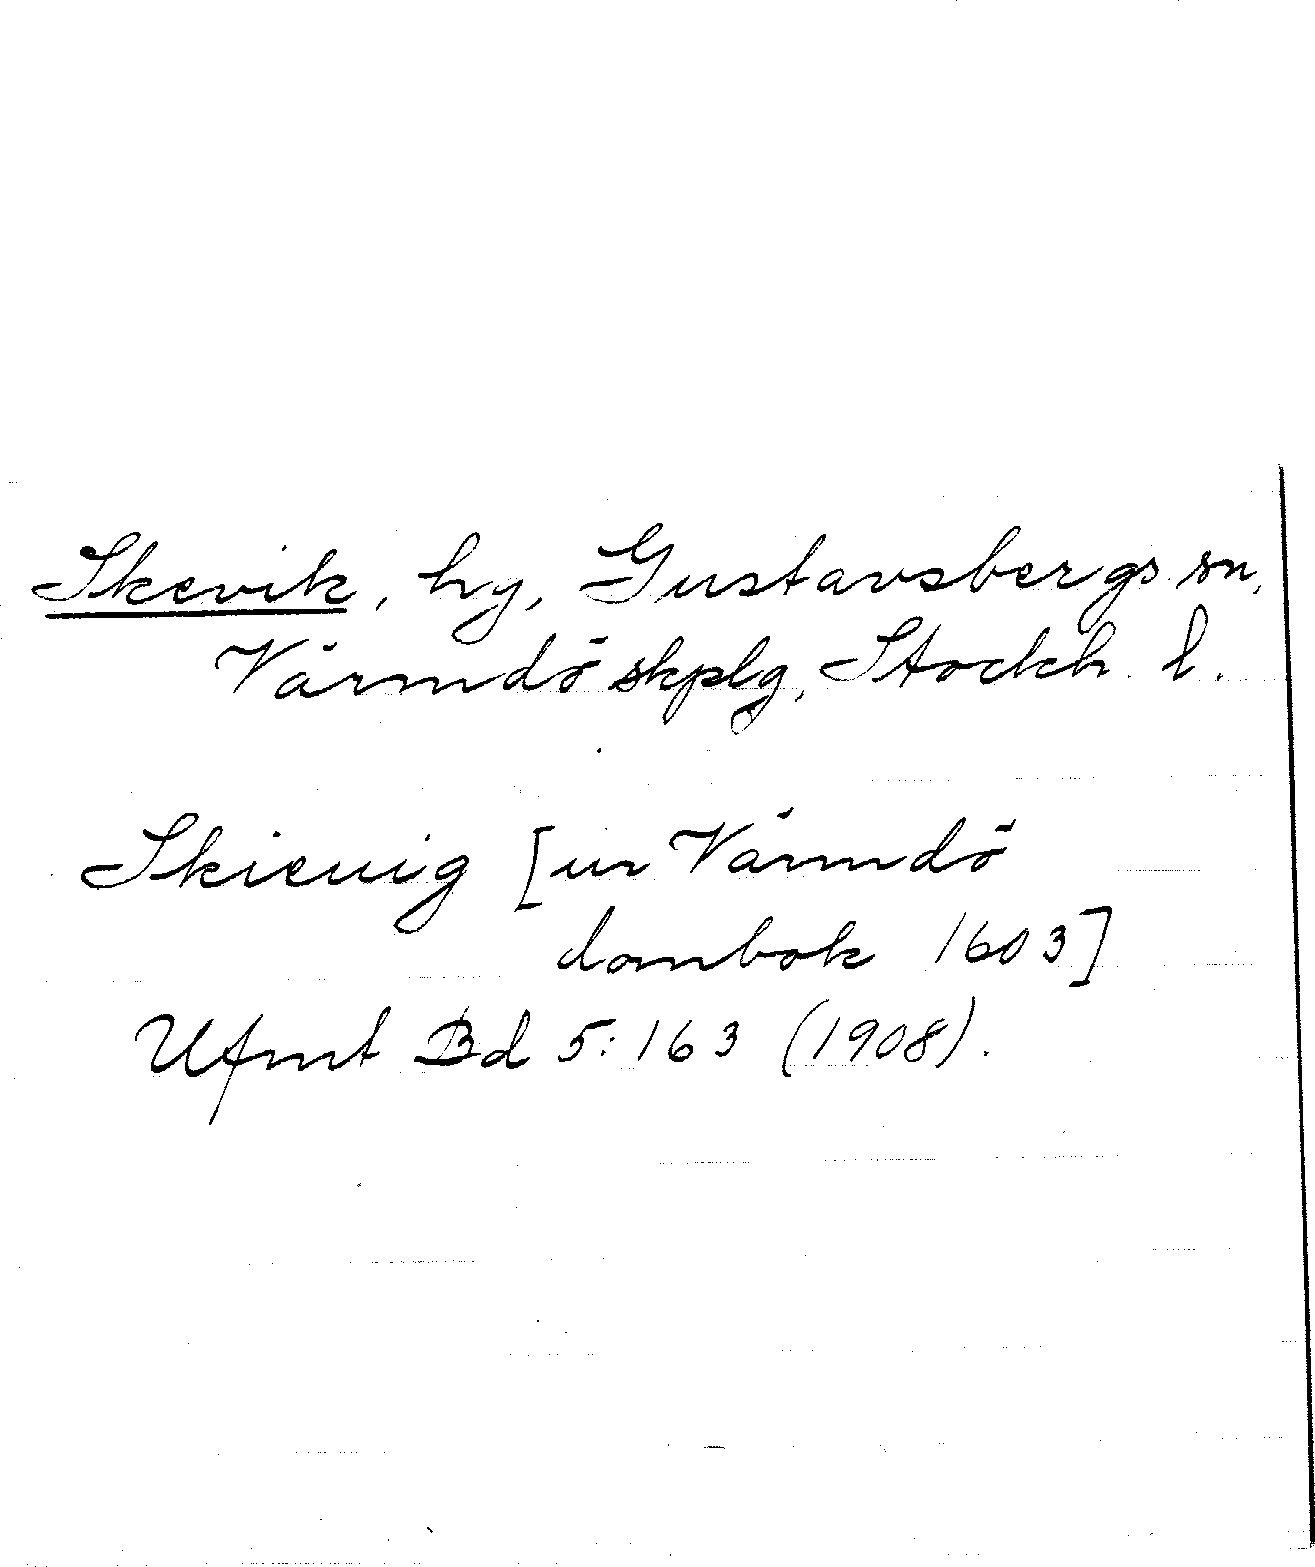 Skevik, by, Gustavsbergs sn,
Värmdö skplg, Stockh. l.
Skieuig [ur Värmdö
dombok 1603]
Ufmt Bd 5:163 (1908).